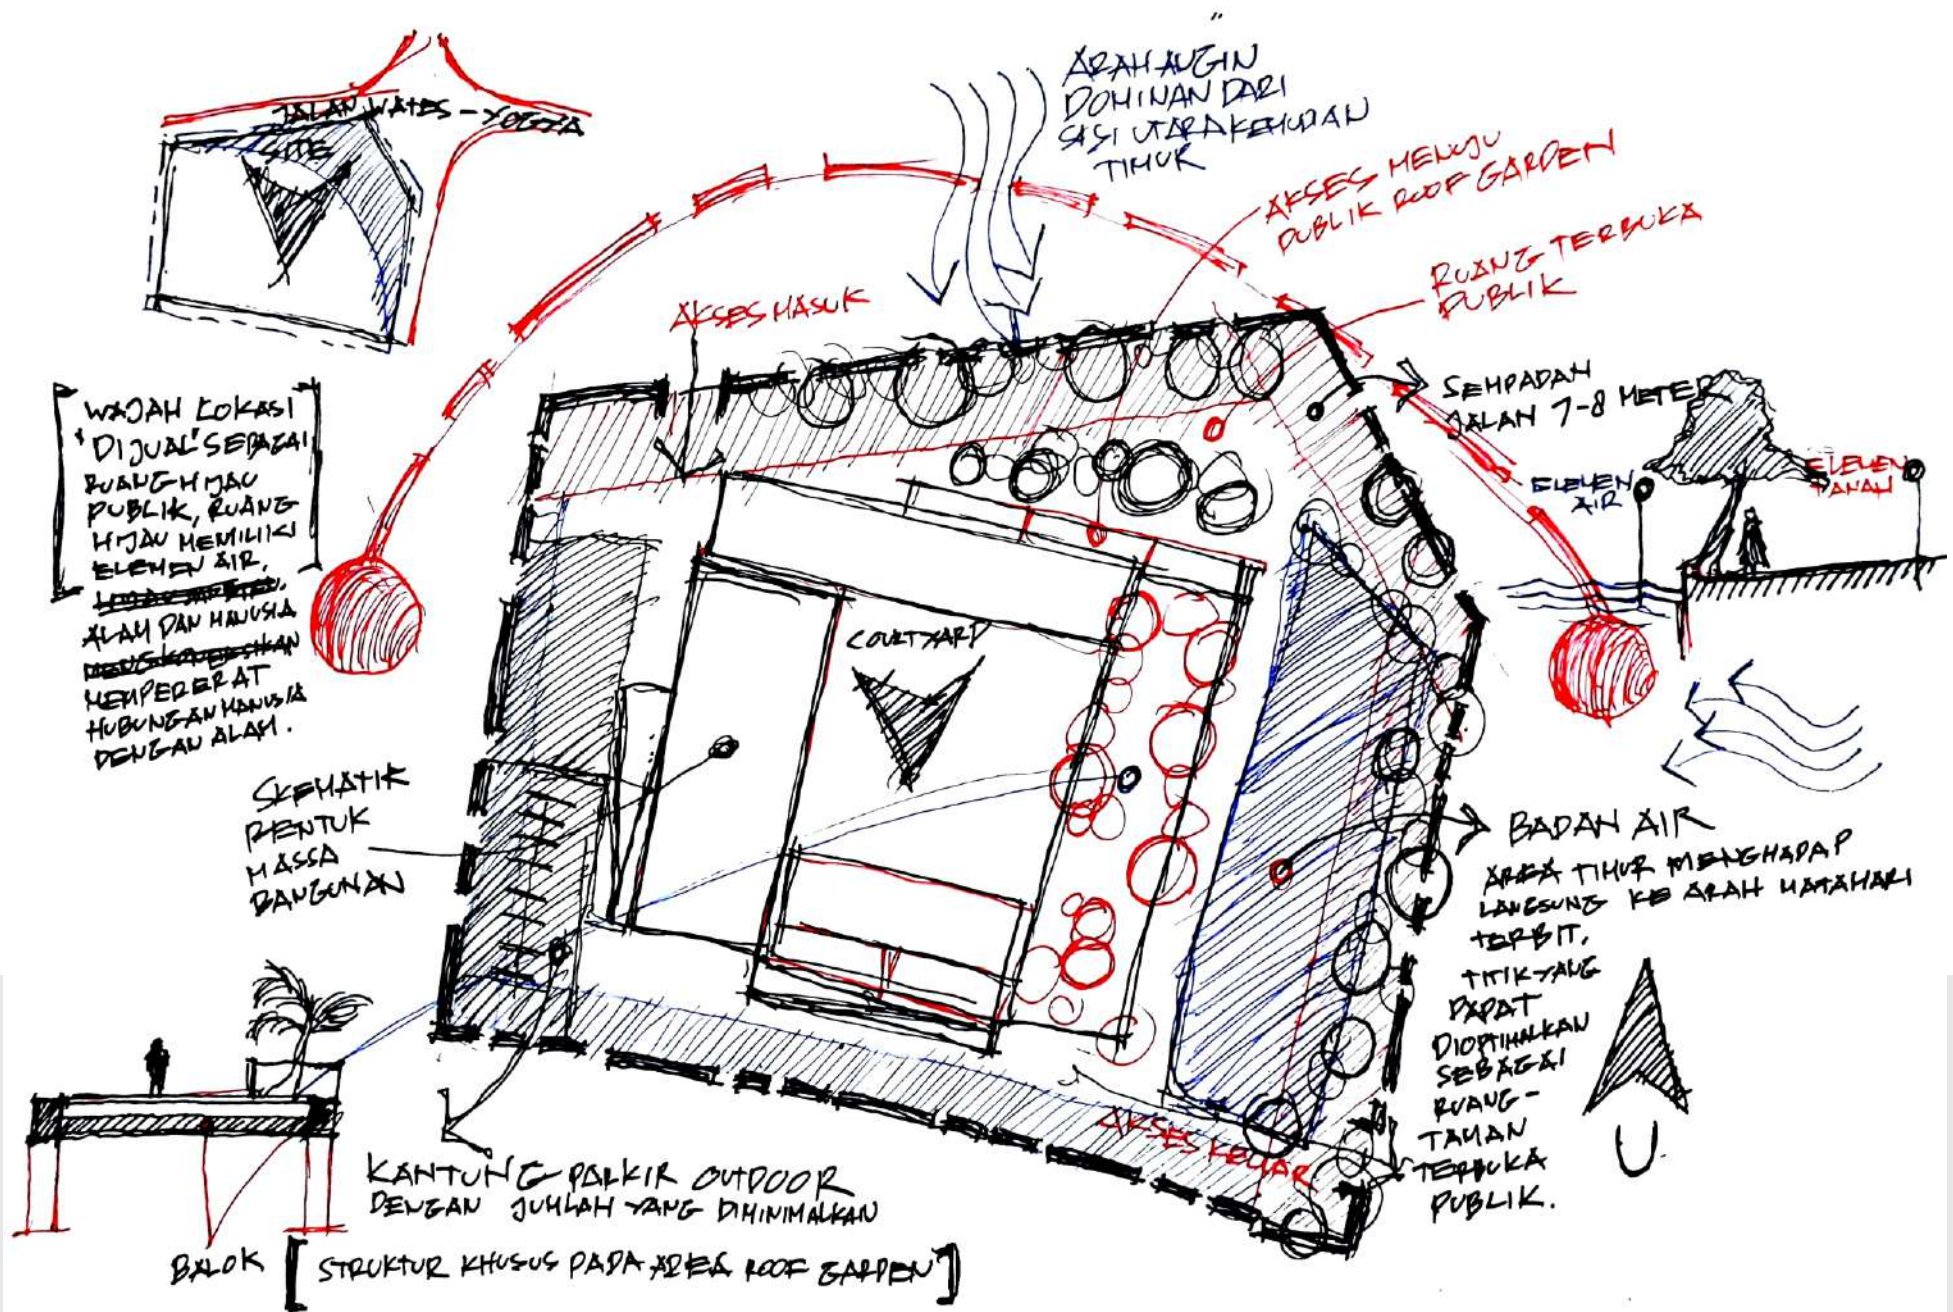 JALAN WATES - YOGYA
SITE
ARAH ANGIN
DOMINAN DARI
SISI UTARA KEMUDIAN
TIMUR
AKSES MENUJU
PUBLIK ROOF GARDEN
RUANG TERBUKA
PUBLIK
AKSES MASUK
SEMPADAN
JALAN 7-8 METER
ELEMEN
AIR
ELEMEN
TANAH
WAJAH LOKASI
'DIJUAL' SEBAGAI
RUANG HIJAU
PUBLIK, RUANG
HIJAU MEMILIKI
ELEMEN AIR,
ALAM DAN MANUSIA
MEMPERERAT
HUBUNGAN MANUSIA
DENGAN ALAM.
COURTYARD
SKEMATIK
BENTUK
MASSA
BANGUNAN
BADAN AIR
AREA TIMUR MENGHADAP
LANGSUNG KE ARAH MATAHARI
TERBIT,
TITIK YANG
DAPAT
DIOPTIMALKAN
SEBAGAI
RUANG-
TAMAN
TERBUKA
PUBLIK.
U
AKSES KELUAR
KANTUNG PARKIR OUTDOOR
DENGAN JUMLAH YANG DIMINIMALKAN
BALOK [STRUKTUR KHUSUS PADA AREA ROOF GARDEN]